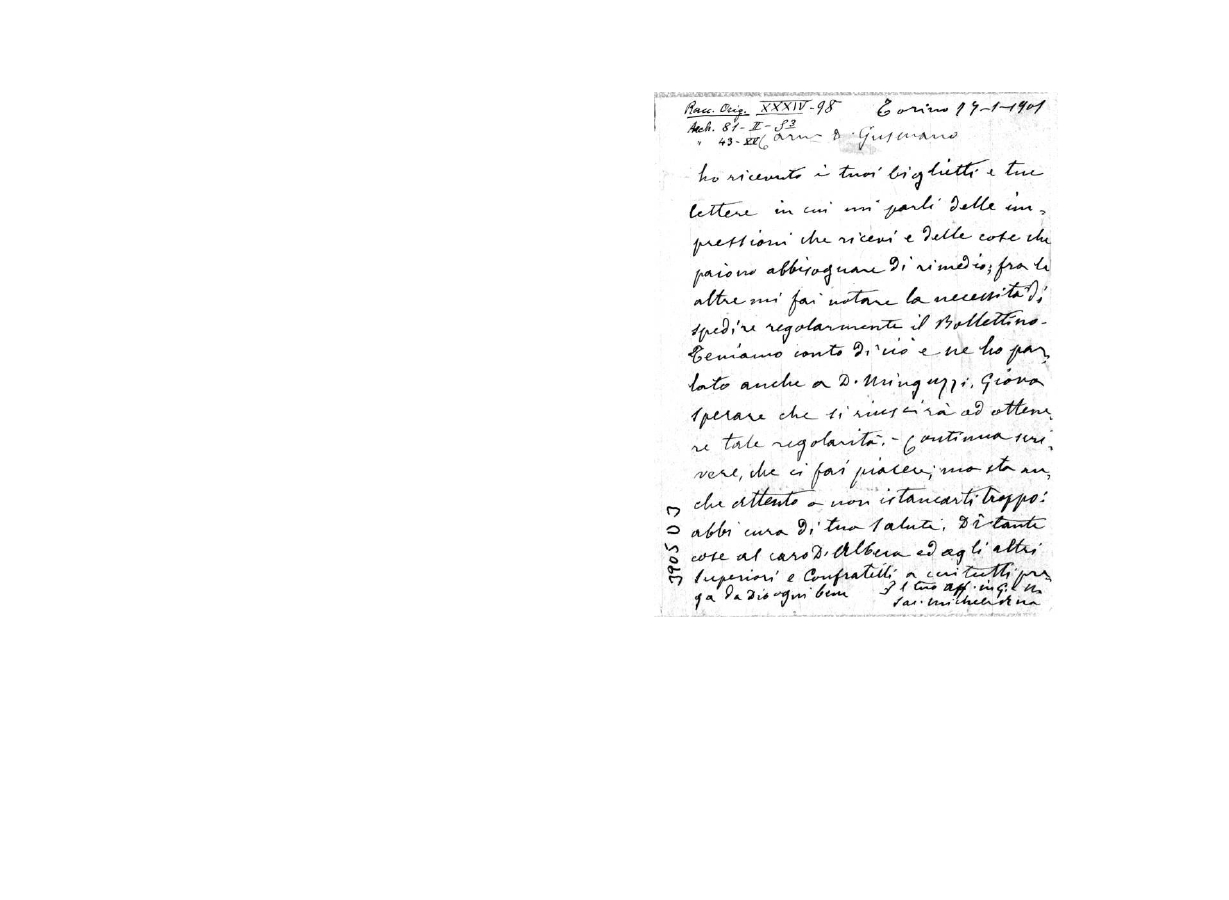 Racc. Orig. XXXIV-98 Torino 17-1-1901
Arch. 81-II-53
" 43- Carmo D. Gusmano
ho ricevuto i tuoi biglietti e tue
lettere in cui mi parli delle im-
pressioni che ricevi e delle cose che
paiono abbisognare di rimedio; fra le
altre mi fai notare la necessità di
spedire regolarmente il Bollettino.
Teniamo conto di ciò e ne ho par-
lato anche a D. Minguzzi. Giova
sperare che si riuscirà ad ottene-
re tale regolarità. - Continua scri-
vere, che ci fai piacere; ma sta an-
che attento a non istancarti troppo:
abbi cura di tua salute. Dì tante
cose al caro D. Albera ed agli altri
Superiori e Confratelli a cui tutti pre-
ga da Dio ogni bene Il tuo aff. in G. e M.
Sac. Michele Rua
390 5 D 3